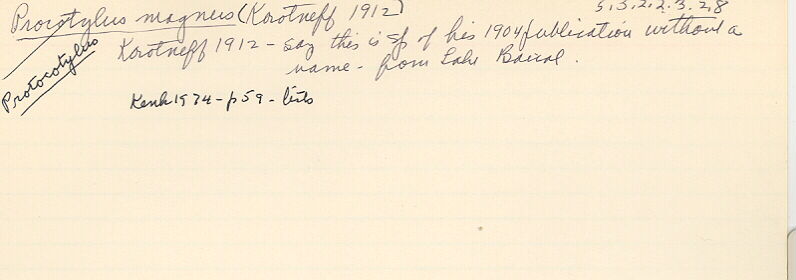 Procotylus magnus (Korotneff 1912) 5.3.2.2.3.2.8
Protocotylus
Korotneff 1912 - say this is sp of his 1904 publication without a
name - from Lake Baical.
Kenk 1974 - p59 - lists